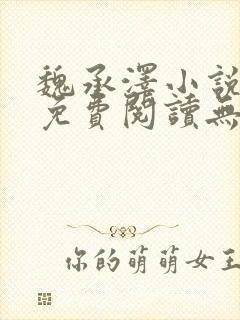 魏承澤小說
免費閱讀無
你的萌萌女王